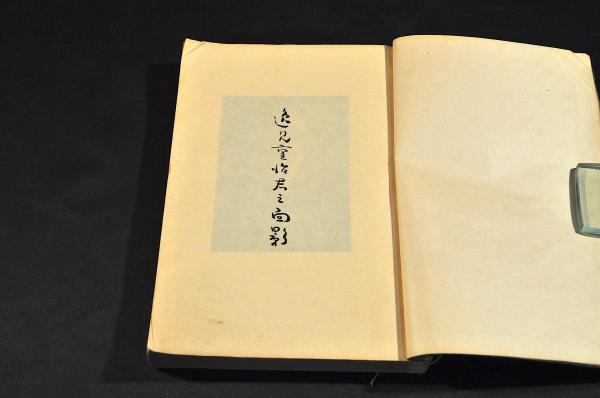 逸見重怡君之面影